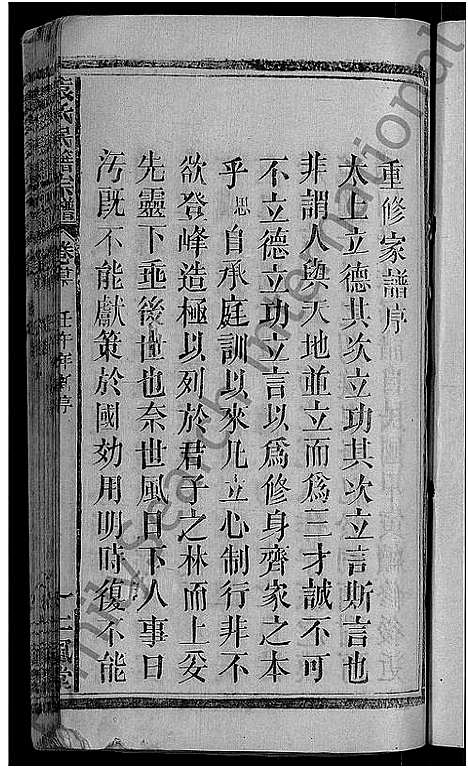 重修家譜序
太上立德其次立功其次立言斯言也
非謂人與天地並立而爲三才誠不可
不立德立功立言以爲修身齊家之本
乎思自承庭訓以來凡立心制行非不
欲登峰造極以列於君子之林而上妥
先靈下垂後世也奈世風日下人事日
汚既不能獻策於國効用明時復不能
袁氏宗譜 卷首 壬午年新序